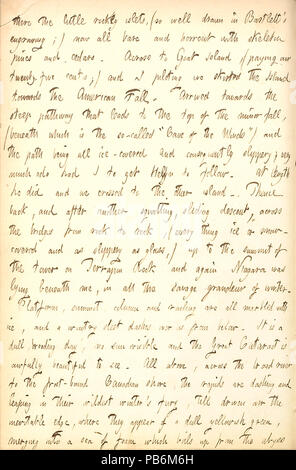 there the little rocky islets, (so well drawn in Bartlett's
engraving;) now all bare and horrent with skeleton
pines and cedars. Across to Goat Island, (paying our
twenty five cents;) and I piloting we skirted the island
towards the American Fall. Arrived towards the
steep pathway that leads to the top of the minor fall,
(beneath which is the so-called "Cave of the Winds") and
the path being all ice-covered and consequently slippery; very
much ado had I to get Heylyn to follow. At length
he did, and we crossed to the other island. Thence
back, and after another squatting, sliding descent, across
the bridge from rock to rock (every thing ice or snow-
covered and as slippery as glass,) up to the summit of
the tower on Terrapin Rock and again Niagara was
lying beneath me, in all the savage grandeur of winter.
Platform, summit, column and railing are all marbled with
ice, and a wintry sleet dashes over us from below. It is a
dull brooding day, no sun visible and the Great Cataract is
awfully beautiful to see. All above, across the broad river
to the frost-bound Canadian shore, the rapids are dashing and
leaping in their wildest winter's fury, till driven over the
inevitable edge, where they appear of a dull yellowish green,
merging into a sea of foam which boils up from the abyss